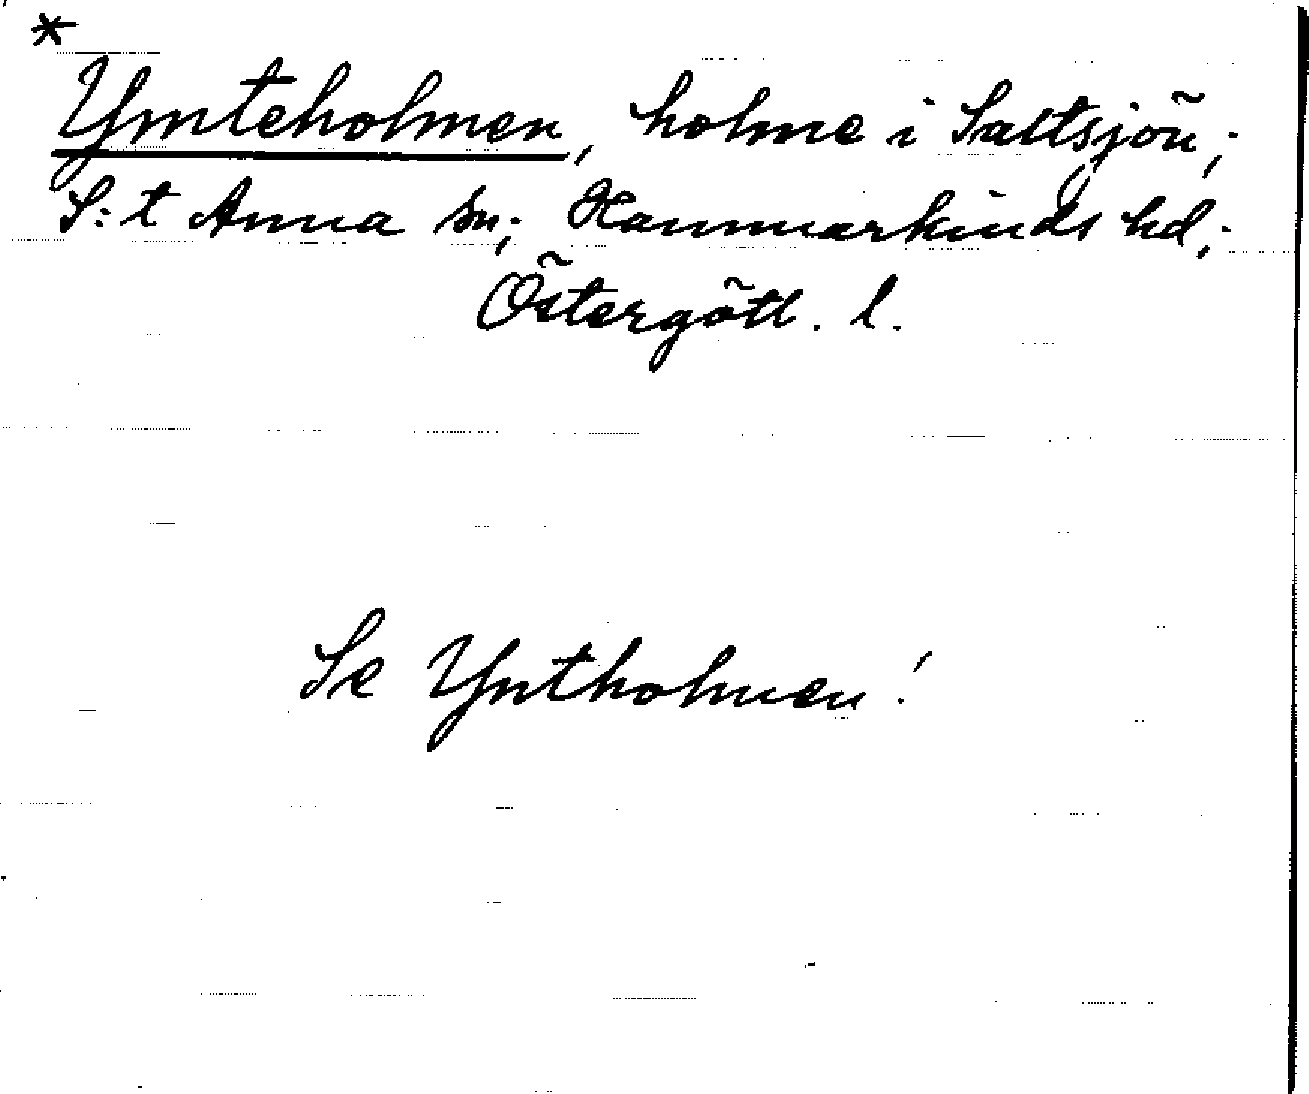 *
Ymteholmen, holme i Saltsjön;
S:t Anna sn; Hammarkinds hd;
Östergötl. l.
Se Yntholmen!